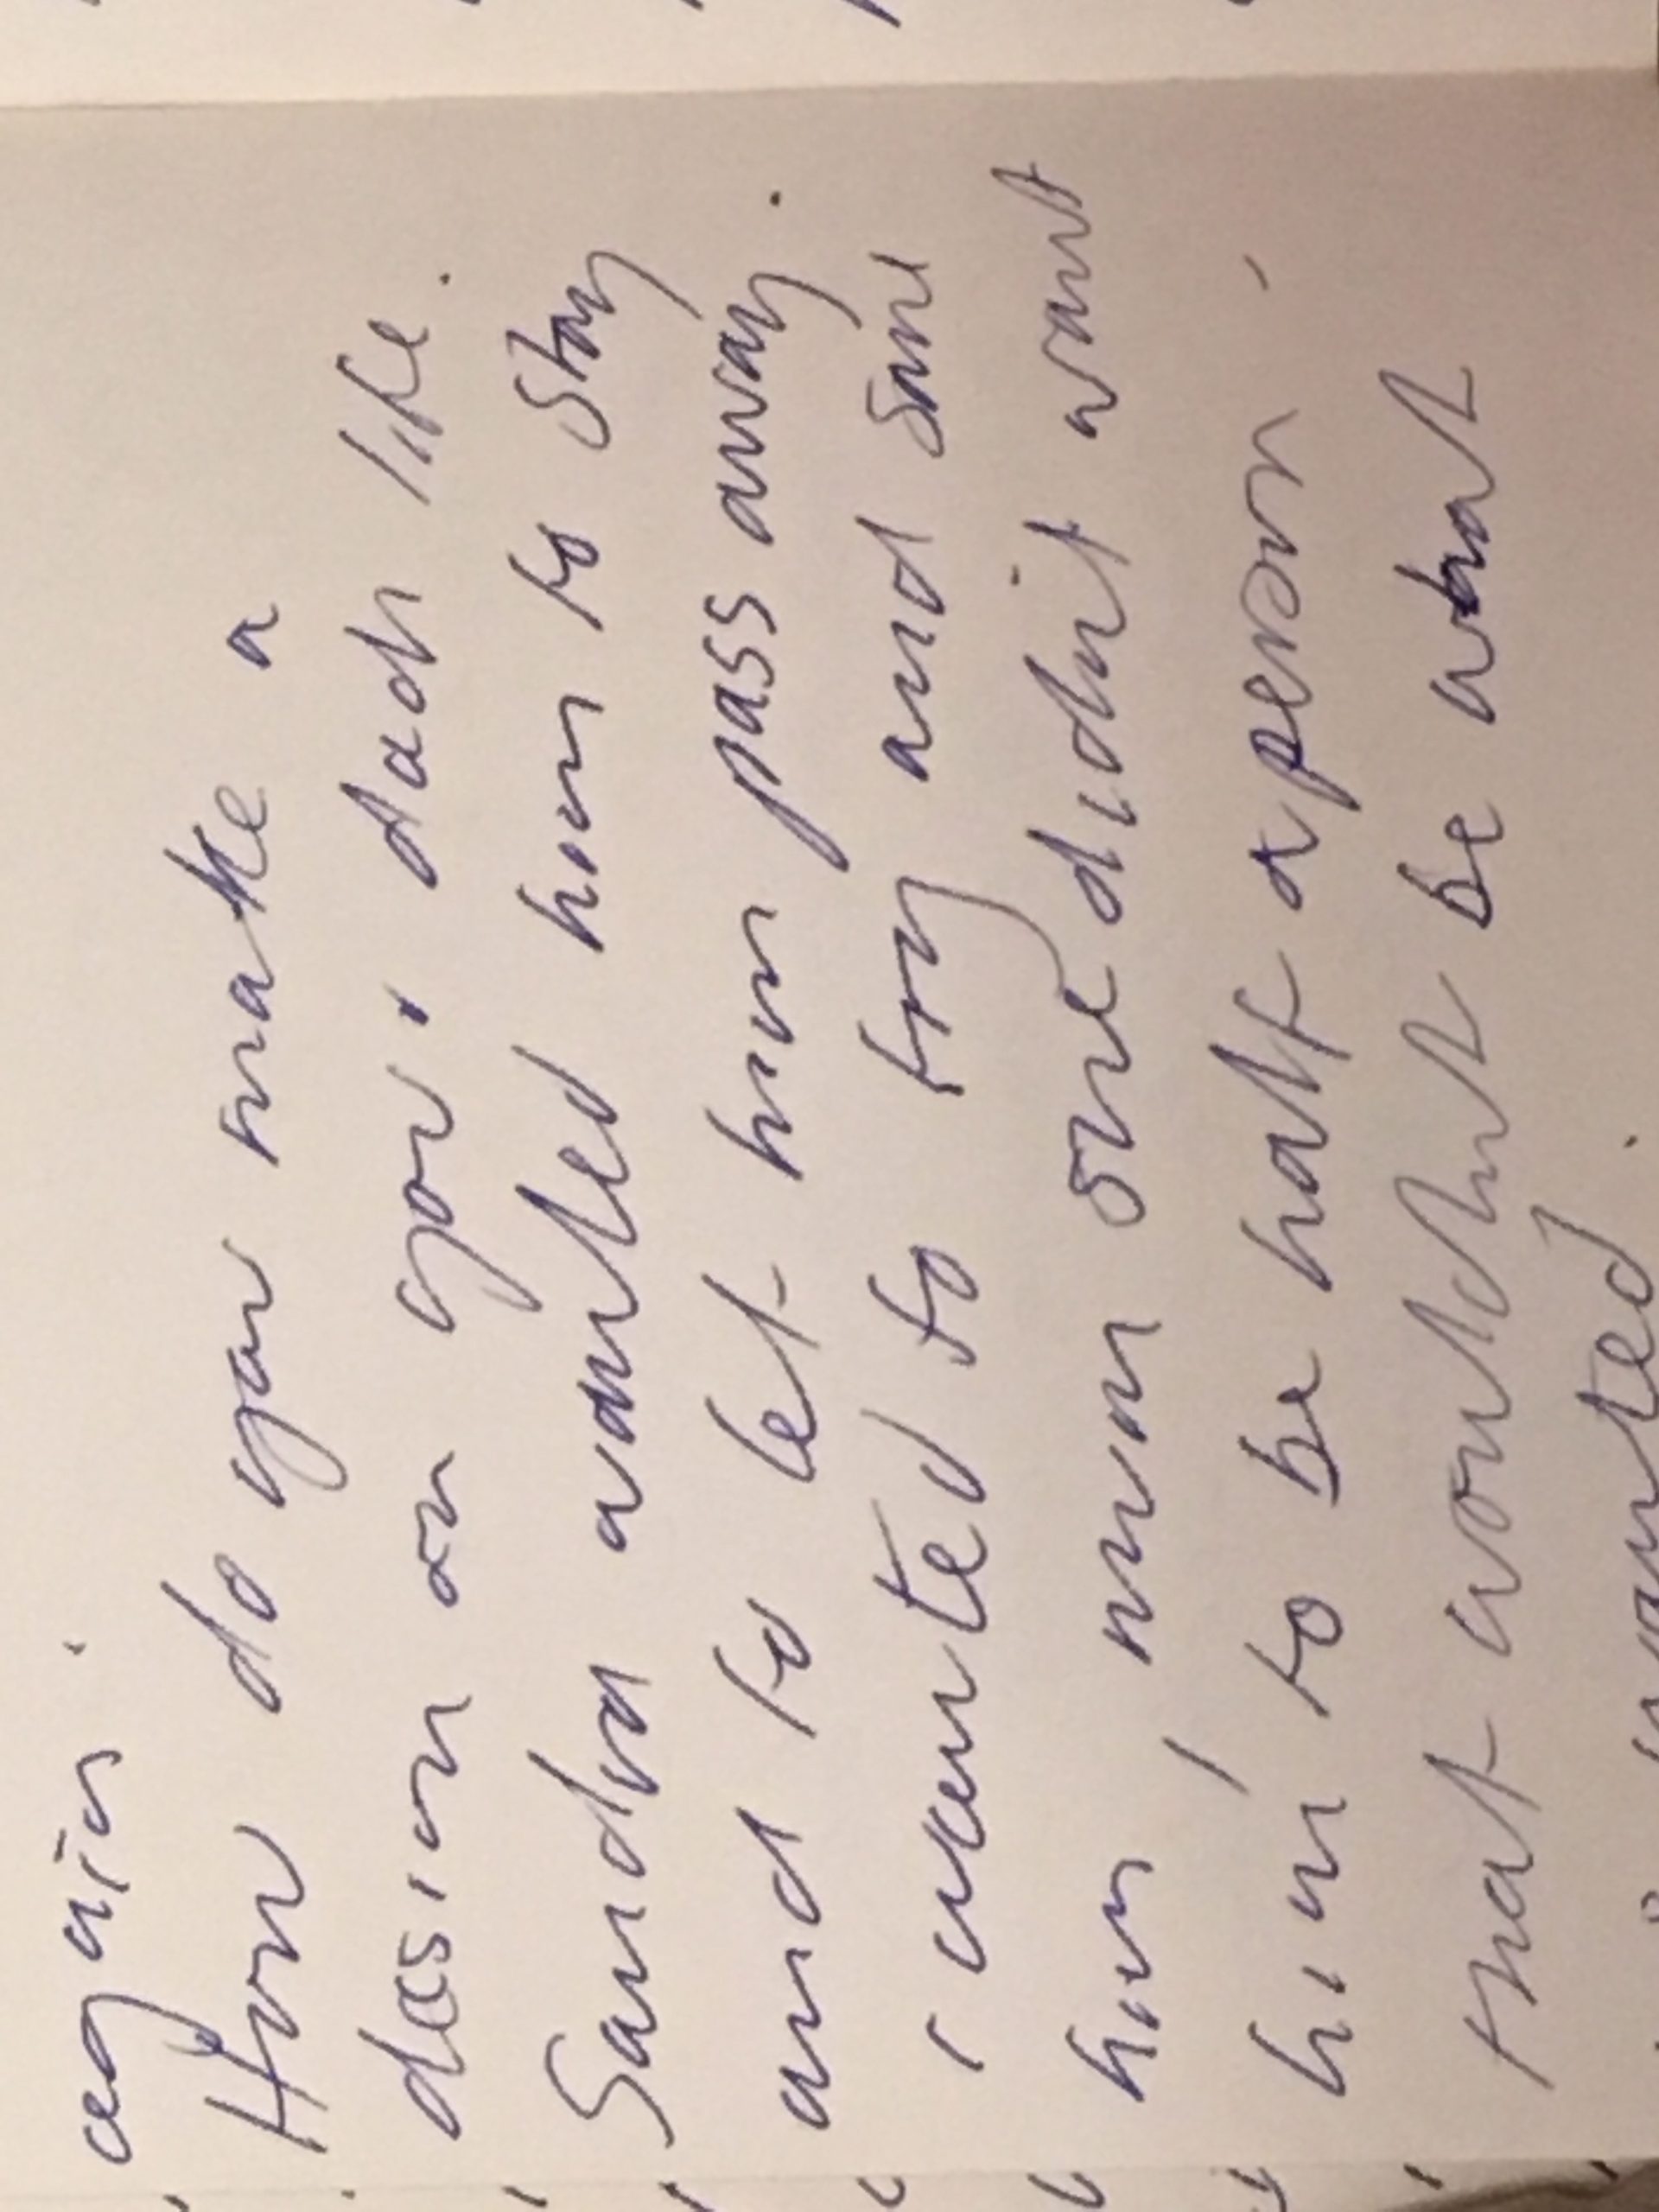 again.
How do you make a
desion on your dads life.
Sandra wanted him to stay
and to let him pass away.
I wanted to try and save
him, mum she didnit want
him to be half a person.
that wouldnt be what
wanted.